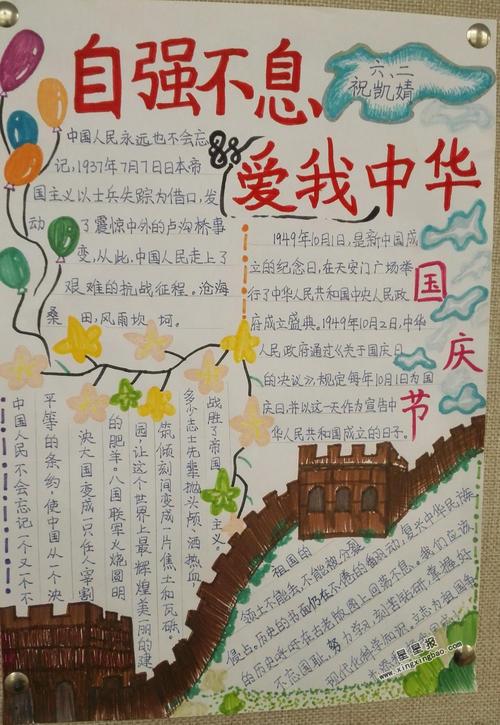 自强不息
六、二
祝凯婧
爱我中华
中国人民永远也不会忘
记,1937年7月7日日本帝
国主义以士兵失踪为借口,发
动了震惊中外的卢沟桥事
变,从此,中国人民走上了
艰难的抗战征程。沧海
桑田,风雨坎坷。
1949年10月1日,是新中国成
立的纪念日,在天安门广场举
行了中华人民共和国中央人民政
府成立盛典。1949年10月2日,中华
人民政府通过《关于国庆日
的决议》,规定每年10月1日为国
庆日,并以这一天作为宣告中
华人民共和国成立的日子。
国庆节
中国人民不会忘记一个又一个不
平等的条约,使中国从一个泱
泱大国变成一只任人宰割
的肥羊。八国联军火烧圆明
园,让这个世界上最辉煌美丽的建
筑倾刻间变成一片焦土和瓦砾。
多少志士先辈抛头颅,洒热血
战胜了帝国主义。
祖国的
领土不能丢,不能被分裂
侵占。历史的书面仍在不停的翻动,复兴中华民族
的历史呼唤在古老版图上回荡不息。我们应该
不忘国耻,努力学习,刻苦钻研,掌握好
现代化科学知识,立志为祖国争
星星报
xingxingbao.com